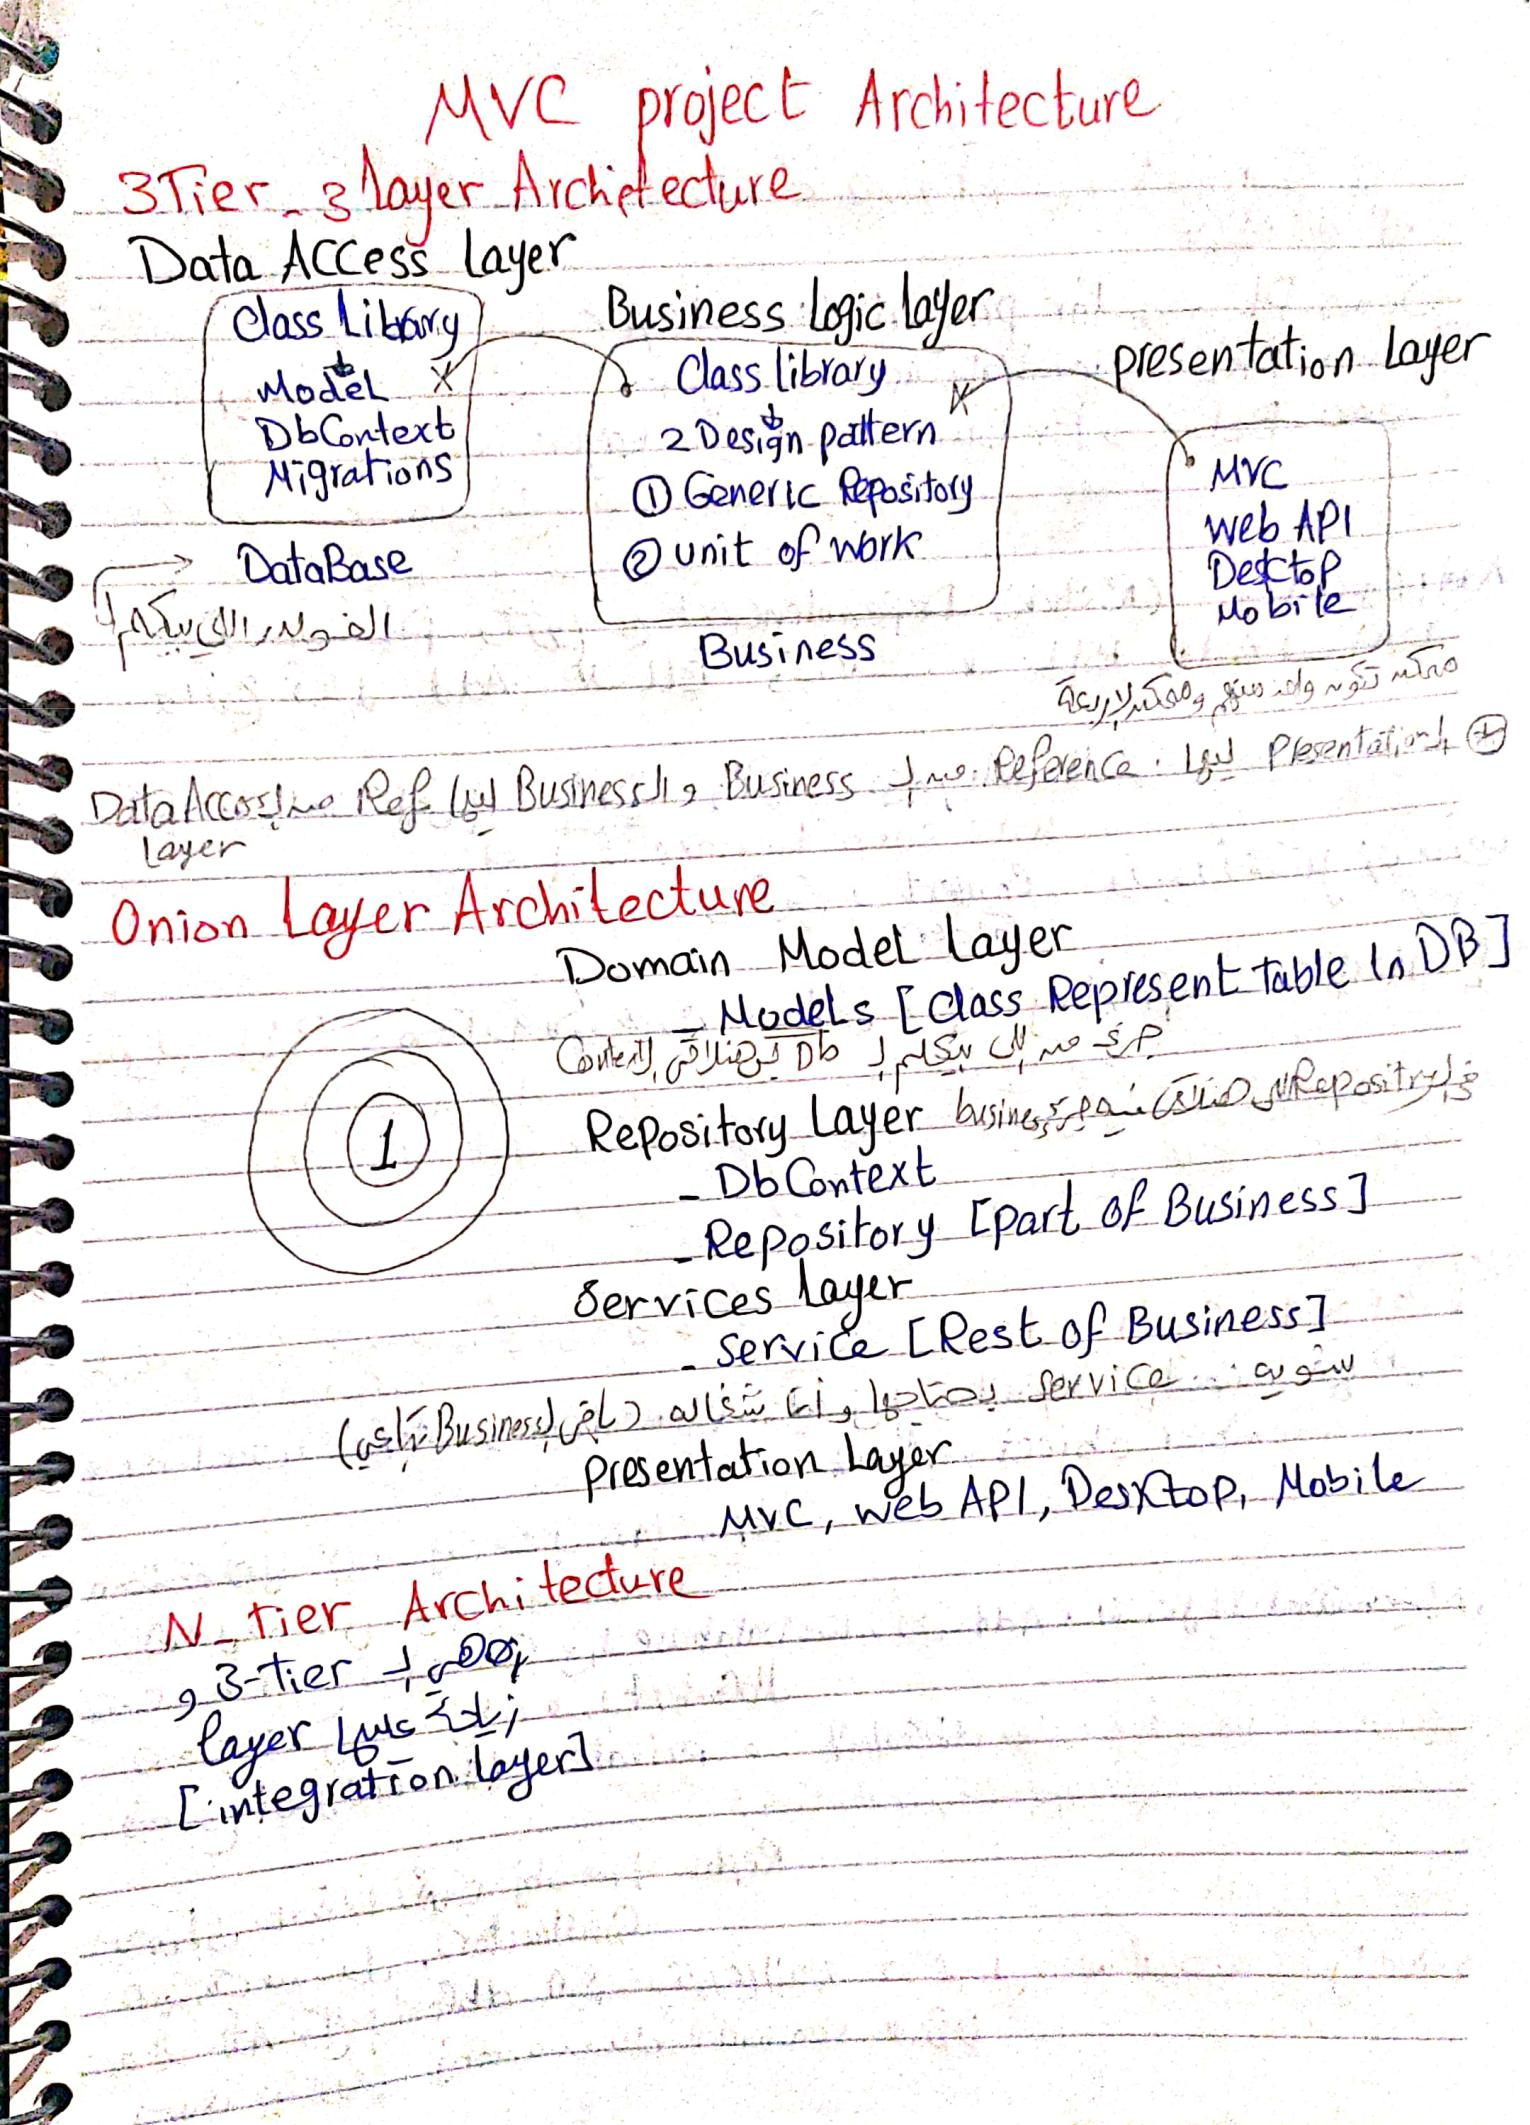 MVC project Architecture
3Tier_3 layer Archietecture
Data Access Layer
Class Library
Model
DbContext
Migrations
DataBase
الفولدر اللي بيكلم ال
Business Logic layer
Class library
2 Design pattern
① Generic Repository
② unit of work
Business
presentation Layer
MVC
Web API
Desktop
Mobile
ممكن تكون واحد منهم وممكن الاربعة
ال Presentation ليها Reference من ال Business و ال Business ليها Ref من ال Data Access
Layer
Onion Layer Architecture
1
Domain Model Layer
_ Models [Class Represent Table In DB]
جزء من اللي بيكلم ال Db هنلاقي ال Context
Repository Layer
في ال Repository اللي هنلاقي فيه جزء business
- DbContext
- Repository [part of Business]
Services Layer
- Service [Rest of Business]
شوية service بحتاجها وأنا شغاله (باقي ال Business بتاعي)
presentation Layer
MVC, web API, Desktop, Mobile
N_Tier Architecture
هي هي ال 3-Tier و
زيادة عليها layer
[integration layer]